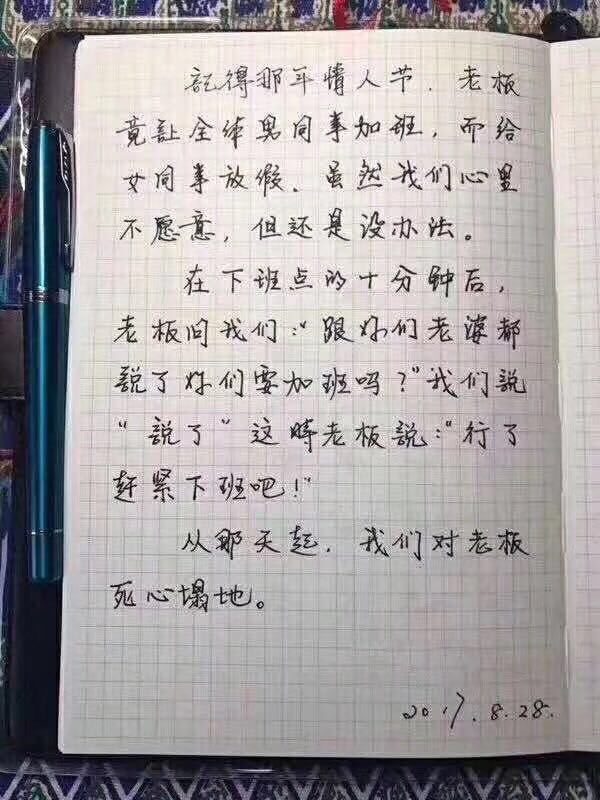 記得那年情人节，老板
竟让全体男同事加班，而给
女同事放假。虽然我们心里
不愿意，但还是没办法。
在下班点的十分钟后，
老板问我们：“跟妳们老婆都
説了妳们要加班吗？”我们説
“説了”这時老板説：“行了
赶紧下班吧！”
从那天起，我们对老板
死心塌地。
2017.8.28.